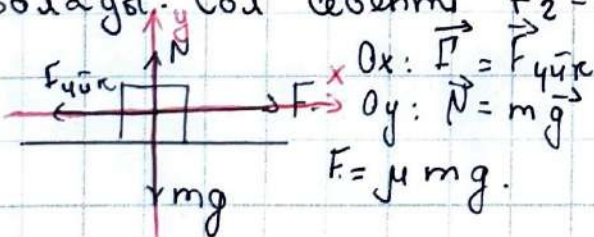 болады. Сол себепті F₂ -
y
N
Fүйк
x
F
mg
Ox: F⃗ = F⃗үйк
Oy: N⃗ = mg⃗
F = μmg.